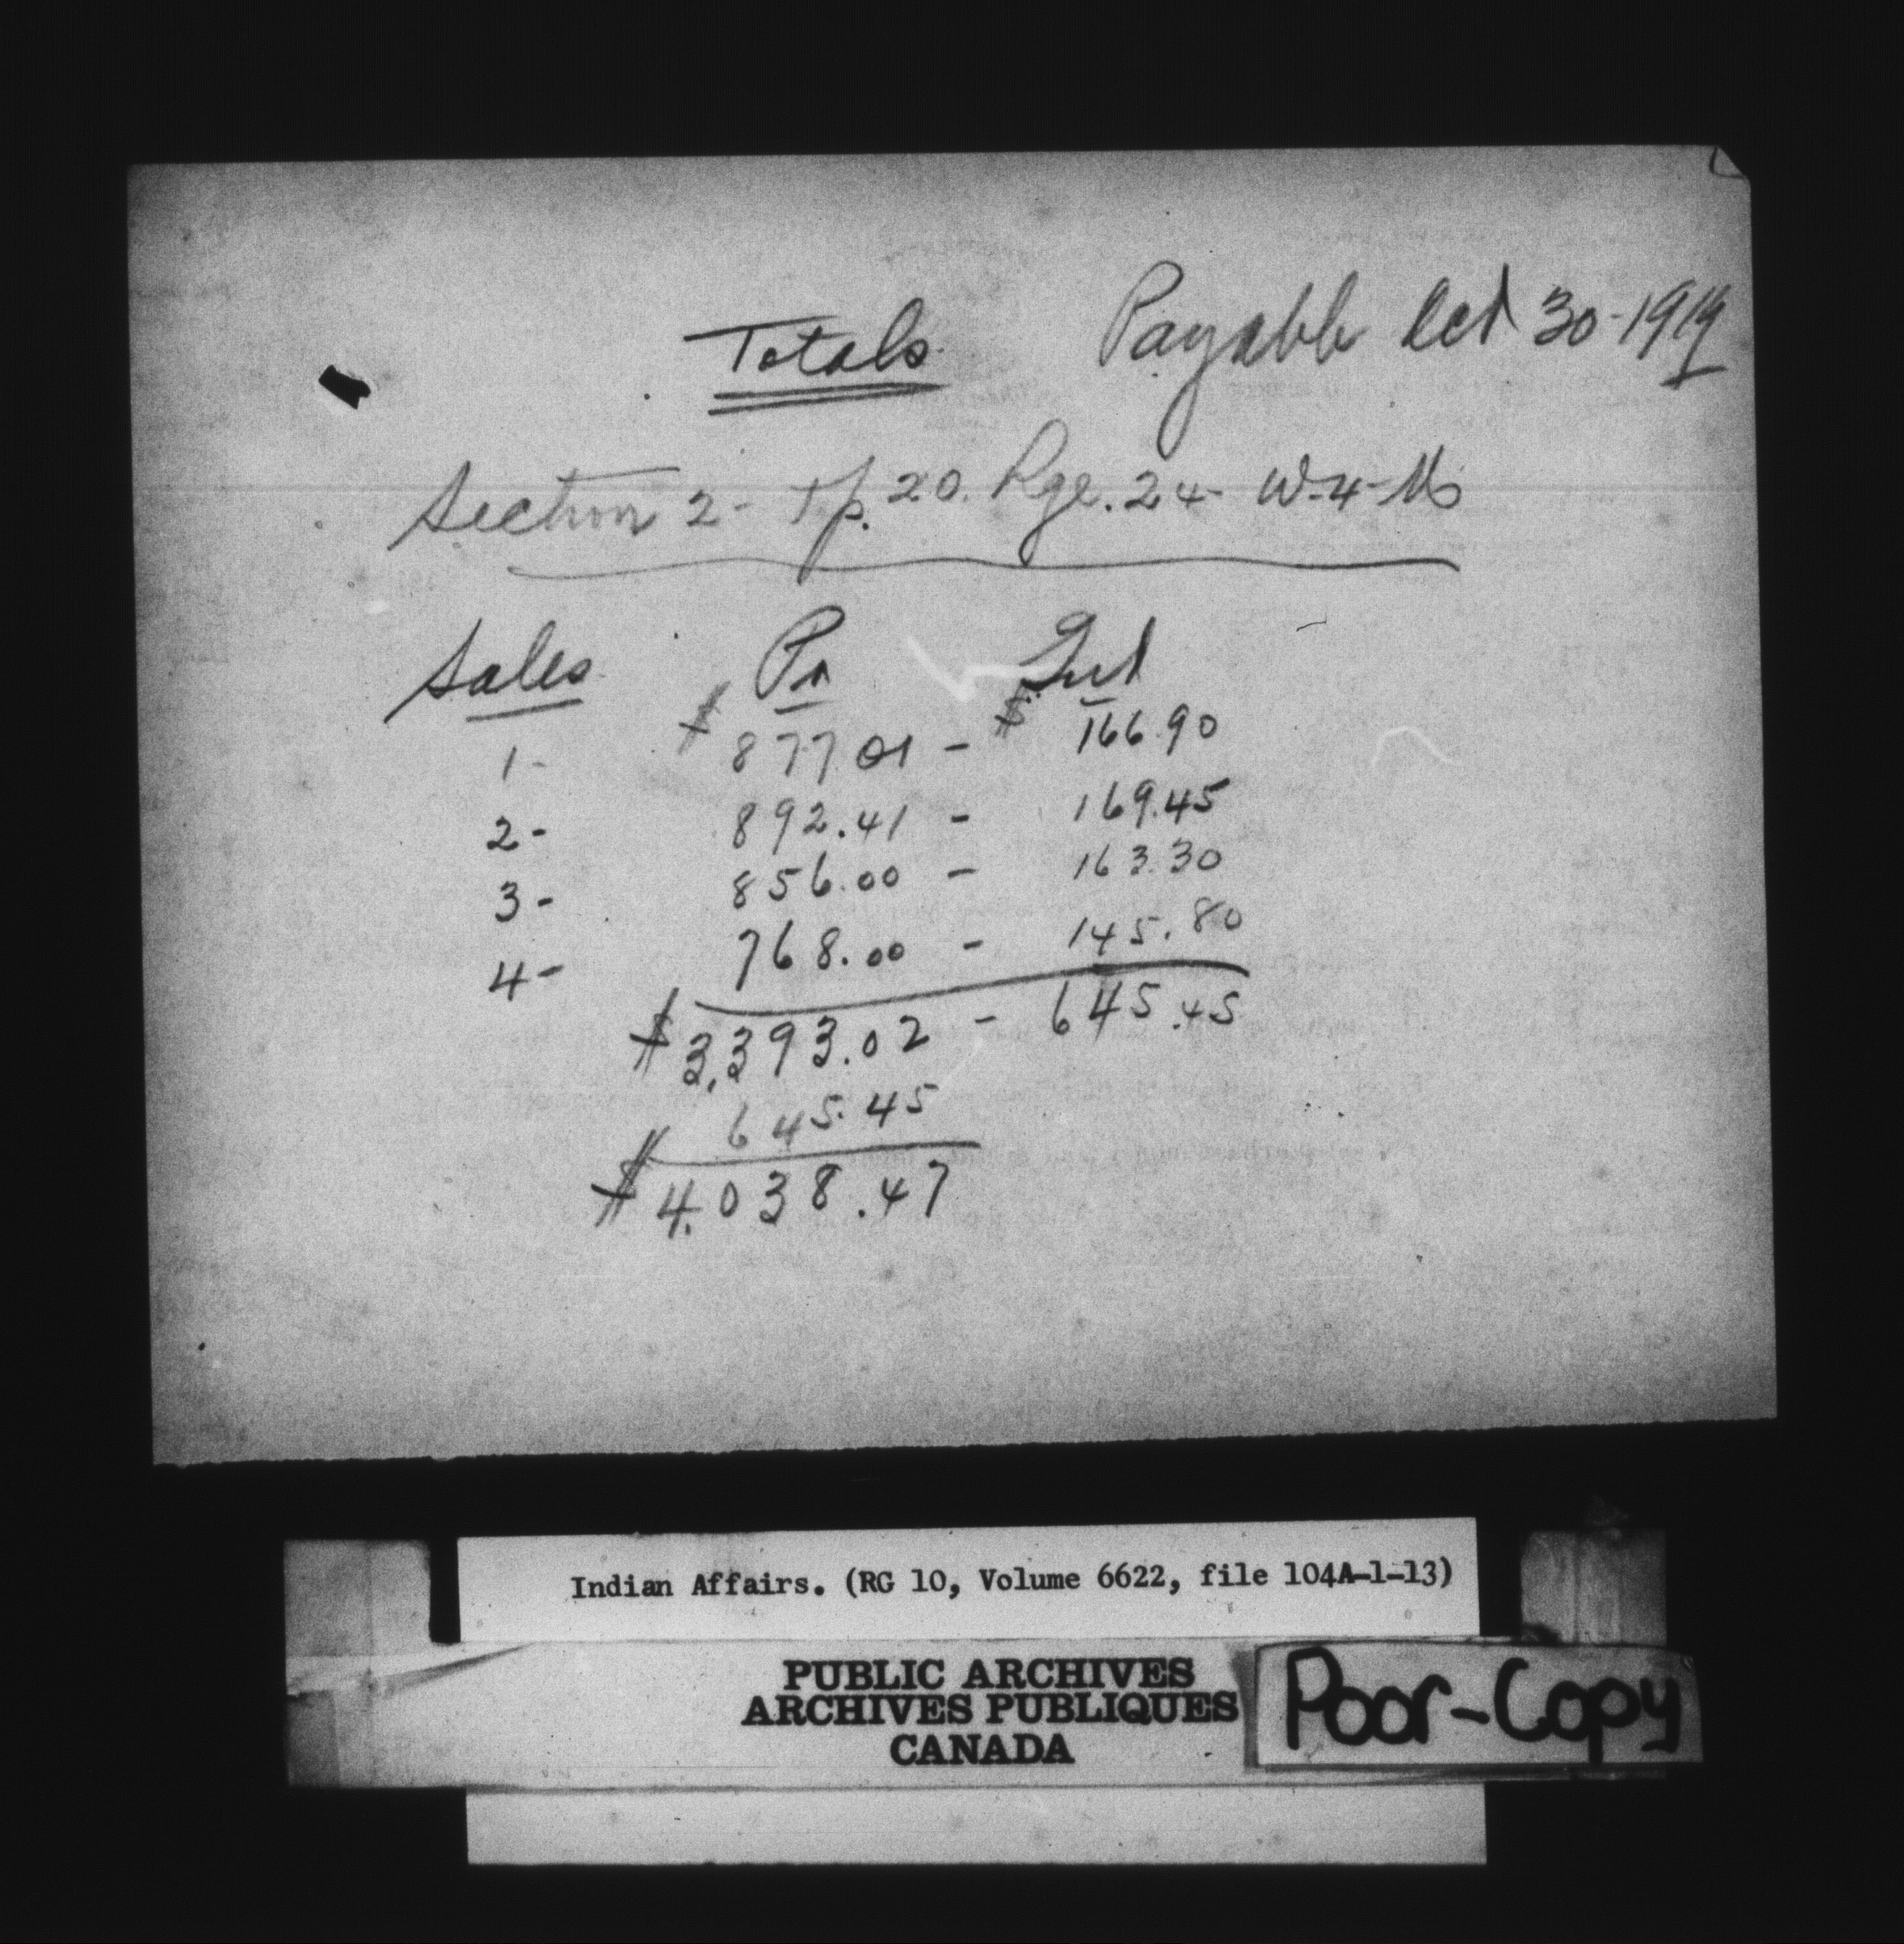 Totals Payable Oct 30-1919
Section 2- Tp. 20. Rge. 24- W-4-M
Sales Pr Int
1- $ 877.01 - $ 166.90
2- 892.41 - 169.45
3- 856.00 - 163.30
4- 768.00 - 145.80
$3,393.02 - 645.45
645.45
$4.038.47
Indian Affairs. (RG 10, Volume 6622, file 104A-1-13)
PUBLIC ARCHIVES
ARCHIVES PUBLIQUES
CANADA
Poor-Copy